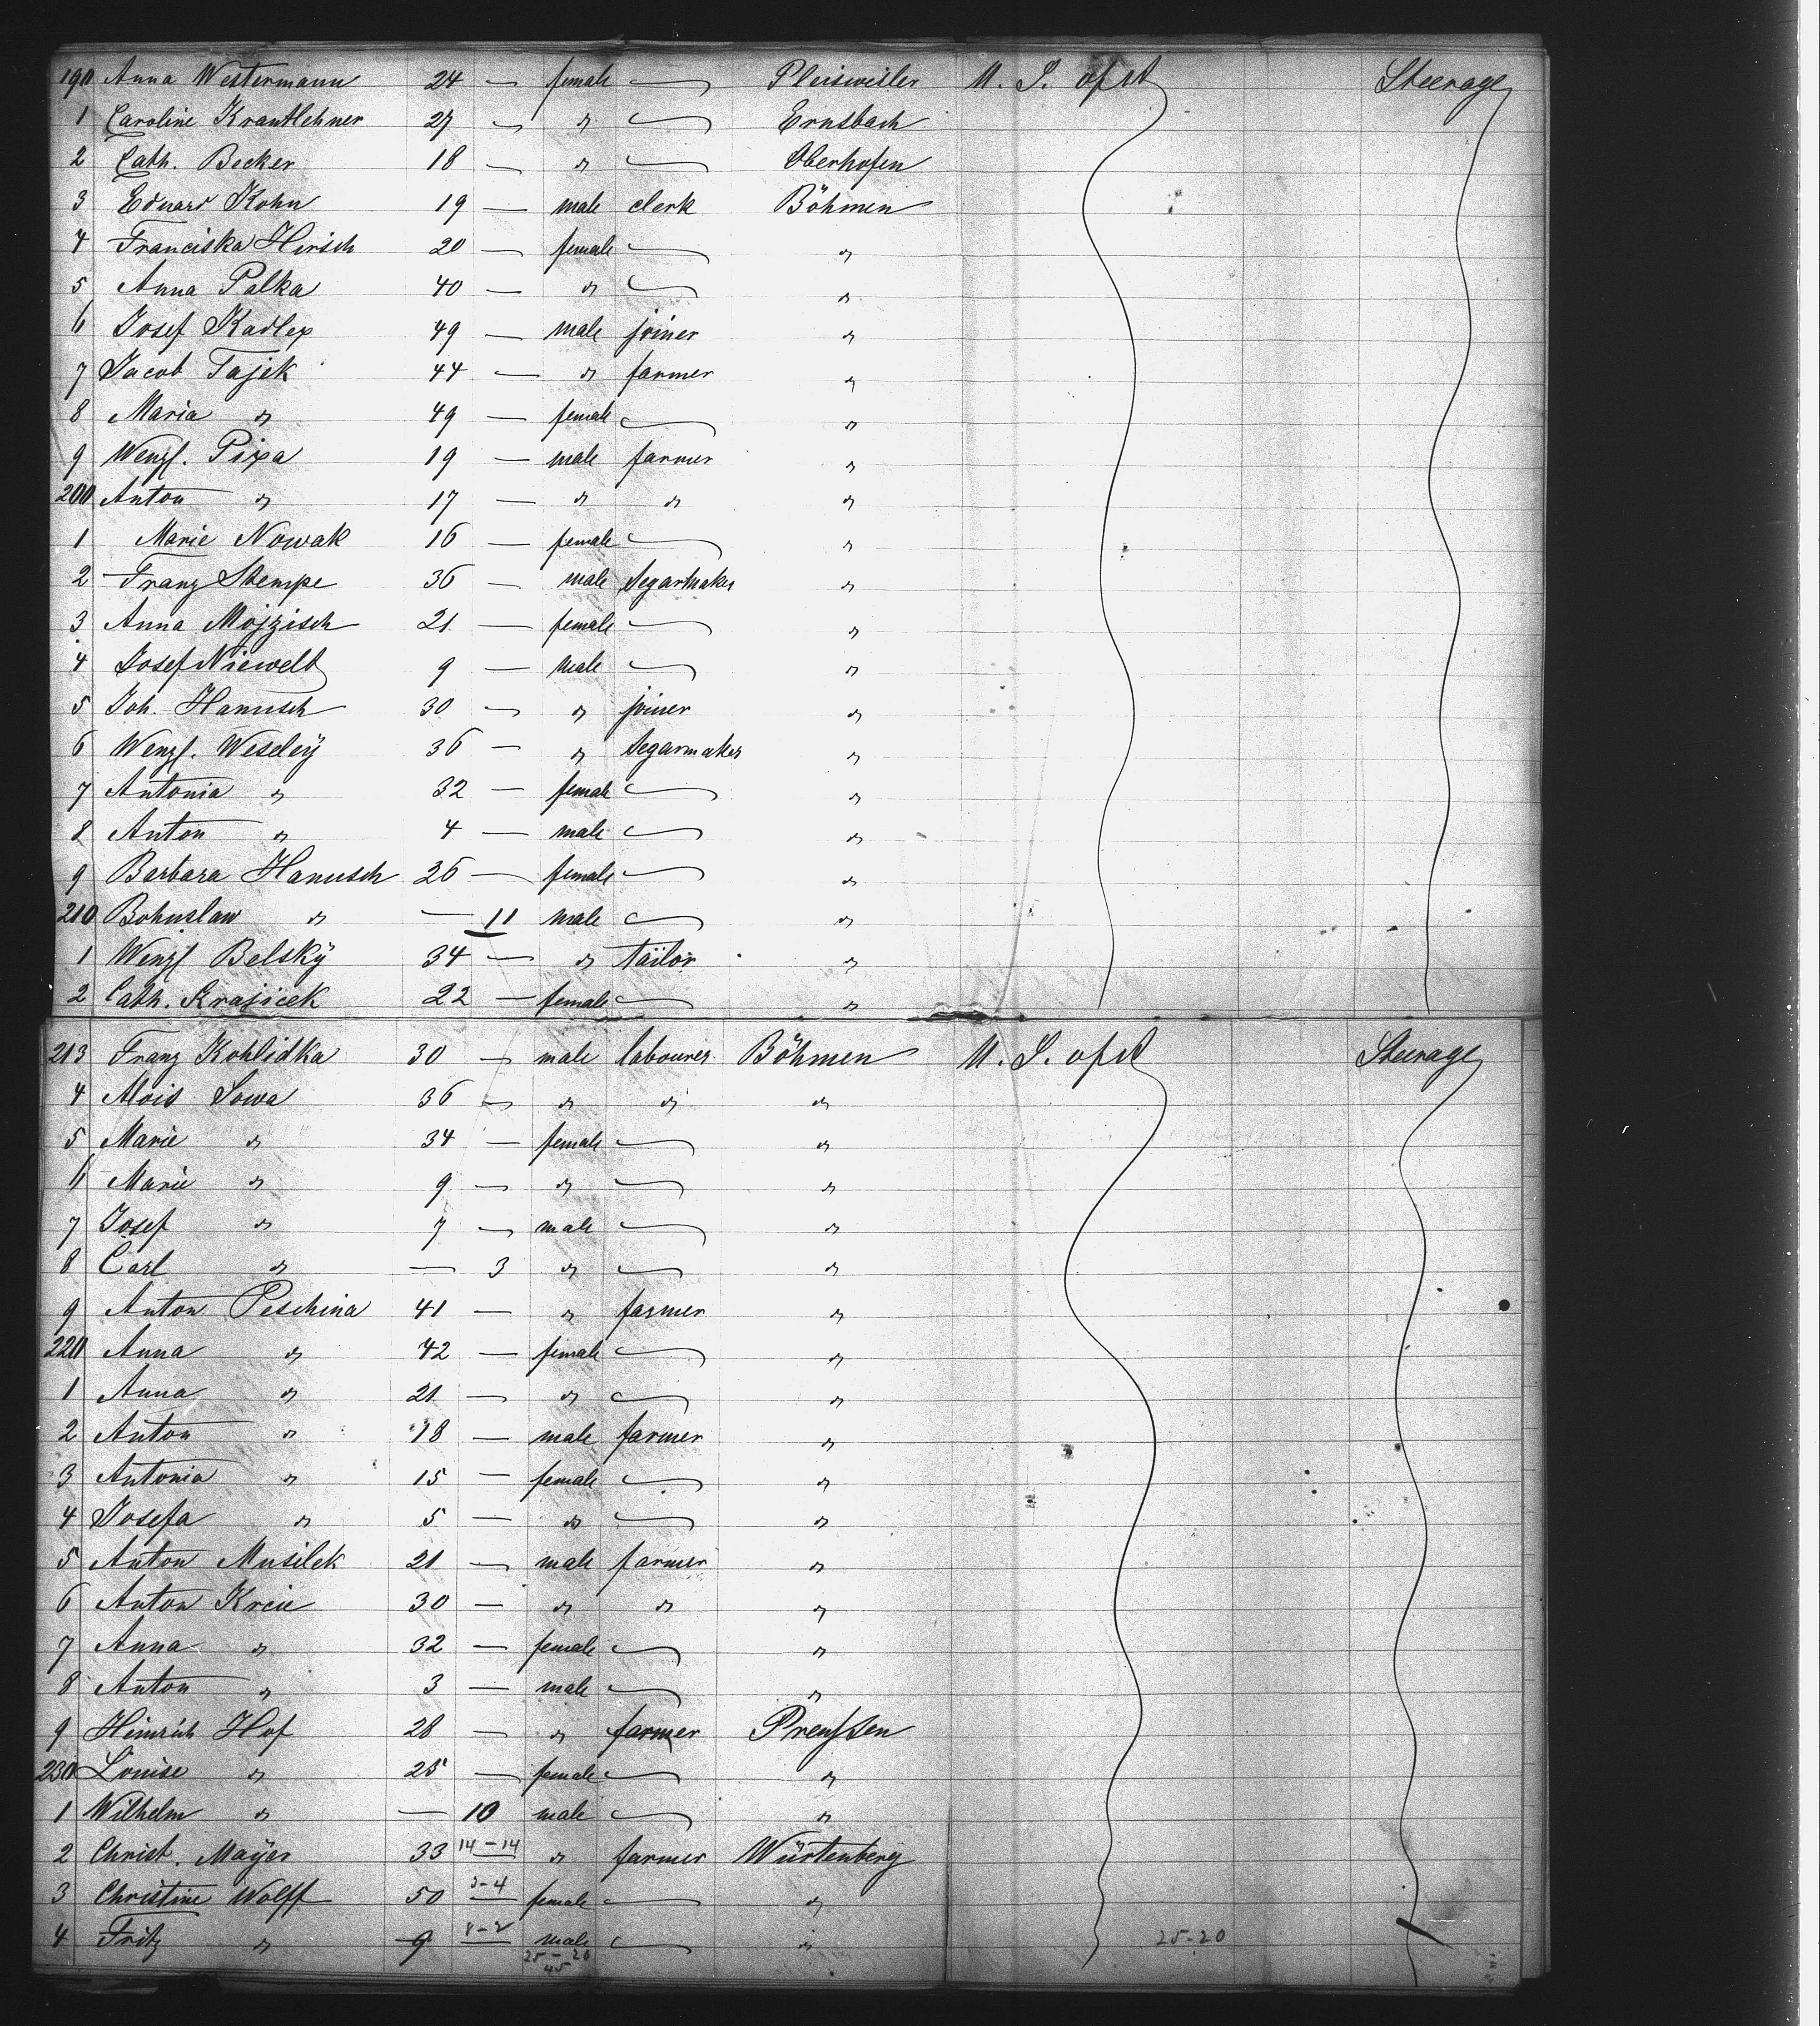 190 Anna Westermann 24 — female — Pleisweiler U. S. of A Steerage
1 Caroline Krautlehner 27 — " — Ernsbach
2 Cath. Becker 18 — " — Oberhofen
3 Eduard Kohn 19 — male clerk Böhmen
4 Franciska Hirsch 20 — female — "
5 Anna Palka 40 — " — "
6 Josef Kadlex 49 — male joiner "
7 Jacob Tajek 44 — " farmer "
8 Maria " 49 — female — "
9 Wenzl. Pixa 19 — male farmer "
200 Anton " 17 — " " "
1 Marie Nowak 16 — female — "
2 Franz Stempe 36 — male Segarmaker "
3 Anna Mojzisch 21 — female — "
4 Josef Niewelt 9 — male — "
5 Joh. Hanusch 30 — " joiner "
6 Wenzl. Weseley 36 — " Segarmaker "
7 Antonia " 32 — female — "
8 Anton " 4 — male — "
9 Barbara Hanusch 26 — female — "
210 Bohuslaw " — 11 male — "
1 Wenzl Belsky 34 — " tailor "
2 Cath. Krajicek 22 — female — "
213 Franz Kohlidka 30 — male labourer Böhmen U. S. of A Steerage
4 Alois Sowa 36 — " " "
5 Marie " 34 — female — "
6 Marie " 9 — " — "
7 Josef " 7 — male — "
8 Carl " — 3 " — "
9 Anton Peschina 41 — " farmer "
220 Anna " 42 — female — "
1 Anna " 21 — " — "
2 Anton " 18 — male farmer "
3 Antonia " 15 — female — "
4 Josefa " 5 — " — "
5 Anton Musilek 21 — male farmer "
6 Anton Krcie 30 — " " "
7 Anna " 32 — female — "
8 Anton " 3 — male — "
9 Heinrich Hof 28 — " farmer Preußen
230 Louise " 25 — female — "
1 Wilhelm " — 10 male — "
2 Christ. Mayer 33 14-14 " farmer Würtenberg
3 Christine Wolff 50 3-4 female — "
4 Fritz " 9 8-2 male — " 25-20
25-20
45